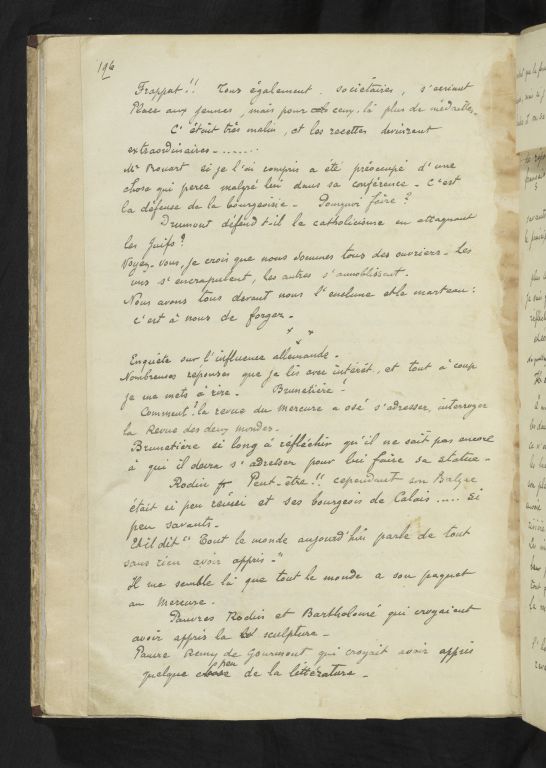 196
Frappat!! Tous également, sociétaires, s'écriant
Place aux jeunes, mais pour ceux-là plus de médailles.
C'était très malin, et les recettes devinrent
extraordinaires - .......
Mr Rouart si je l'ai compris a été préoccupé d'une
chose qui perce malgré lui dans sa conférence - C'est
la défense de la bourgeoisie - Pourquoi faire?
Drumont défend t-il le catholicisme en attaquant
les Juifs?
Voyez-vous, je crois que nous sommes tous des ouvriers - Les
uns s'encrapulent, les autres s'annoblissent.
Nous avons tous devant nous l'enclume et le marteau:
c'est à nous de forger -
* * *
Enquête sur l'influence allemande -
Nombreuses reponses que je lis avec intérêt, et tout à coup
je me mets à rire - Brunetière!
Comment! la revue du Mercure a osé s'adresser, interroger
la Revue des deux mondes -
Brunetière si long à réfléchir qu'il ne sait pas encore
à qui il devra s'adresser pour lui faire sa statue -
Rodin Peut-être!! cependant son Balzac
était si peu réussi et ses bourgeois de Calais ..... si
peu savants -
Et il dit "Tout le monde aujourd'hui parle de tout
sans rien avoir appris -"
Il me semble là que tout le monde a son paquet
au Mercure.
Pauvres Rodin et Bartholomé qui croyaient
avoir appris la sculpture -
Pauvre Remy de Gourmont qui croyait avoir appris
quelque peu de la littérature -